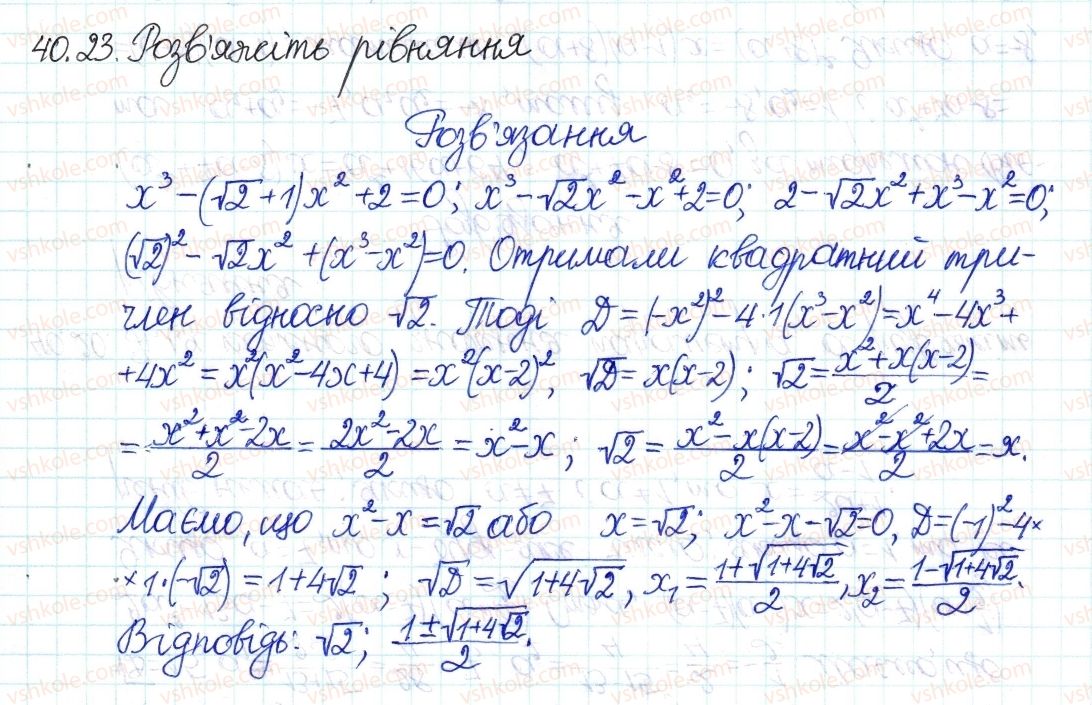 40.23. Розв'яжіть рівняння
Розв'язання
x³ − (√2 + 1)x² + 2 = 0; x³ − √2x² − x² + 2 = 0; 2 − √2x² + x³ − x² = 0;
(√2)² − √2x² + (x³ − x²) = 0. Отримали квадратний три-
член відносно √2. Тоді D = (−x²)² − 4·1(x³ − x²) = x⁴ − 4x³ +
+ 4x² = x²(x² − 4x + 4) = x²(x − 2)², √D = x(x − 2); √2 = (x² + x(x − 2))/2 =
= (x² + x² − 2x)/2 = (2x² − 2x)/2 = x² − x; √2 = (x² − x(x − 2))/2 = (x² − x² + 2x)/2 = x.
Маємо, що x² − x = √2 або x = √2; x² − x − √2 = 0, D = (−1)² − 4×
×1·(−√2) = 1 + 4√2; √D = √(1 + 4√2), x₁ = (1 + √(1 + 4√2))/2, x₂ = (1 − √(1 + 4√2))/2.
Відповідь: √2; (1 ± √(1 + 4√2))/2.